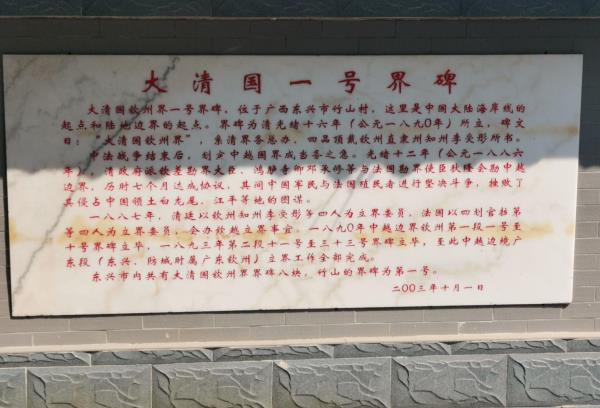 大清国一号界碑
大清国钦州界一号界碑，位于广西东兴市竹山村，这里是中国大陆海岸线的
起点和陆地边界的起点。界碑为清光绪十六年（公元一八九0年）所立，碑文
曰：“大清国钦州界”，系清界务总办、四品顶戴钦州直隶州知州李受彤所书。
中法战争结束后，划定中越国界成当务之急。光绪十二年（公元一八八六
年），清政府派钦差勘界大臣、鸿胪寺卿邓承修等与法国勘界使臣狄隆会勘中越
边界，历时七个月达成协议，其间中国军民与法国殖民者进行坚决斗争，挫败了
其侵占中国领土白龙尾、江平等地的图谋。
一八八七年，清廷以钦州知州李受彤等四人为立界委员，法国以四划官拉第
等四人为立界委员，会办钦越立界事宜。一八九0年中越边界钦州第一段一号至
十号界碑立毕，一八九三年第二段十一号至三十三号界碑立毕，至此中越边境广
东段（东兴、防城时属广东钦州）立界工作全部完成。
东兴市内共有大清国钦州界界碑八块，竹山的界碑为第一号。
二00三年十月一日